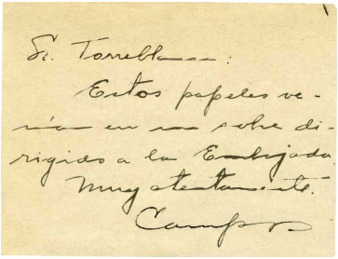 Sr. Torreblanca:
Estos papeles ve-
nían en un sobre di-
rigido a la Embajada.
Muy atentamente.
Campos